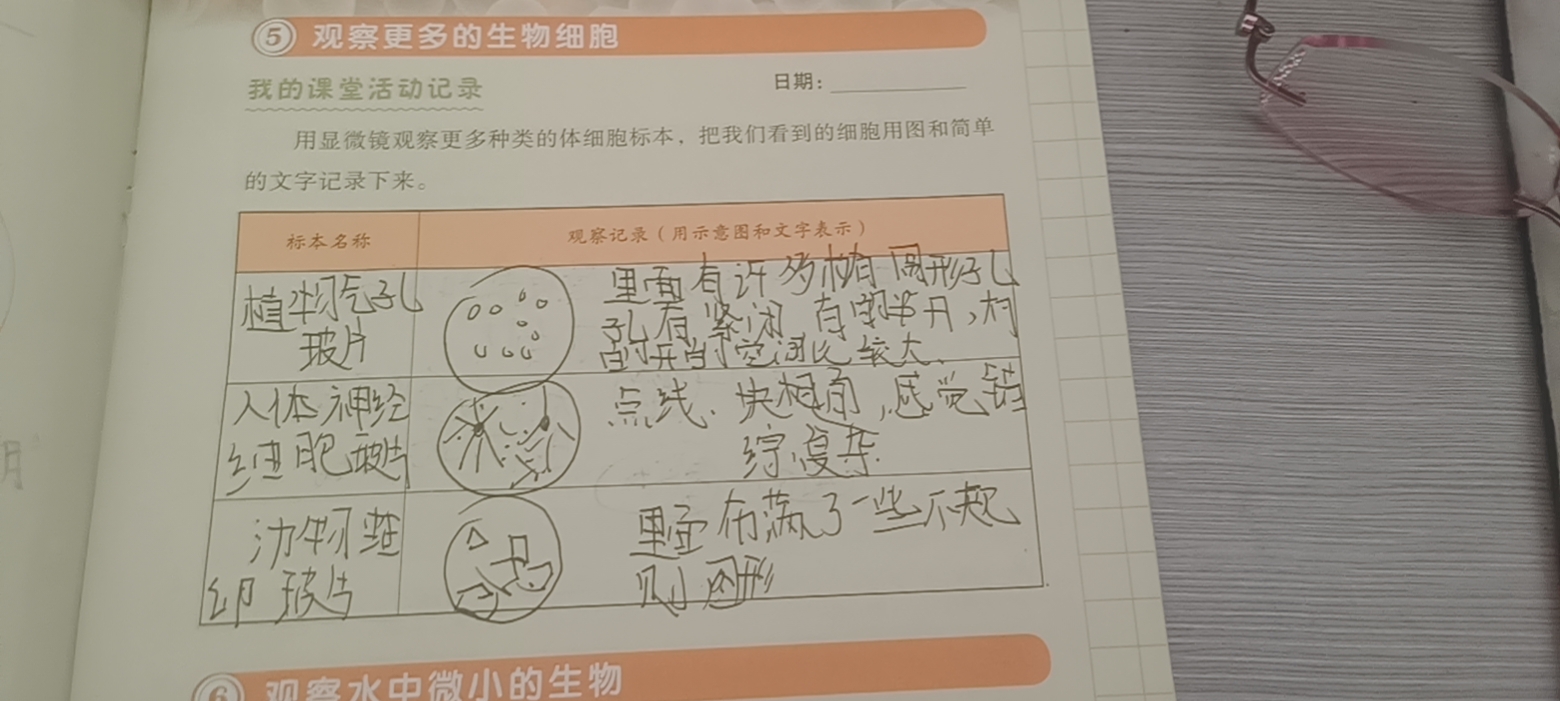 5 观察更多的生物细胞
我的课堂活动记录
日期：
用显微镜观察更多种类的体细胞标本，把我们看到的细胞用图和简单
的文字记录下来。
标本名称 观察记录（用示意图和文字表示）
植物气孔
玻片
里面有许多椭圆形孔
孔有紧闭 有
空间比较大.
人体神经
细胞玻片
点线、块相间,感觉错
综复杂.
动物
玻片
里面布满了一些不规
则图形
6 观察水中微小的生物
月